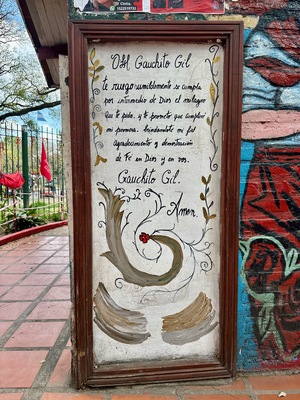 Oh! Gauchito Gil
te ruego humildemente se cumpla
por intermedio de Dios el milagro
que te pido, y te prometo que cumpliré
mi promesa, brindandote mi fiel
agradecimiento y demostración
de Fe en Dios y en vos.
Gauchito Gil.
Amen.